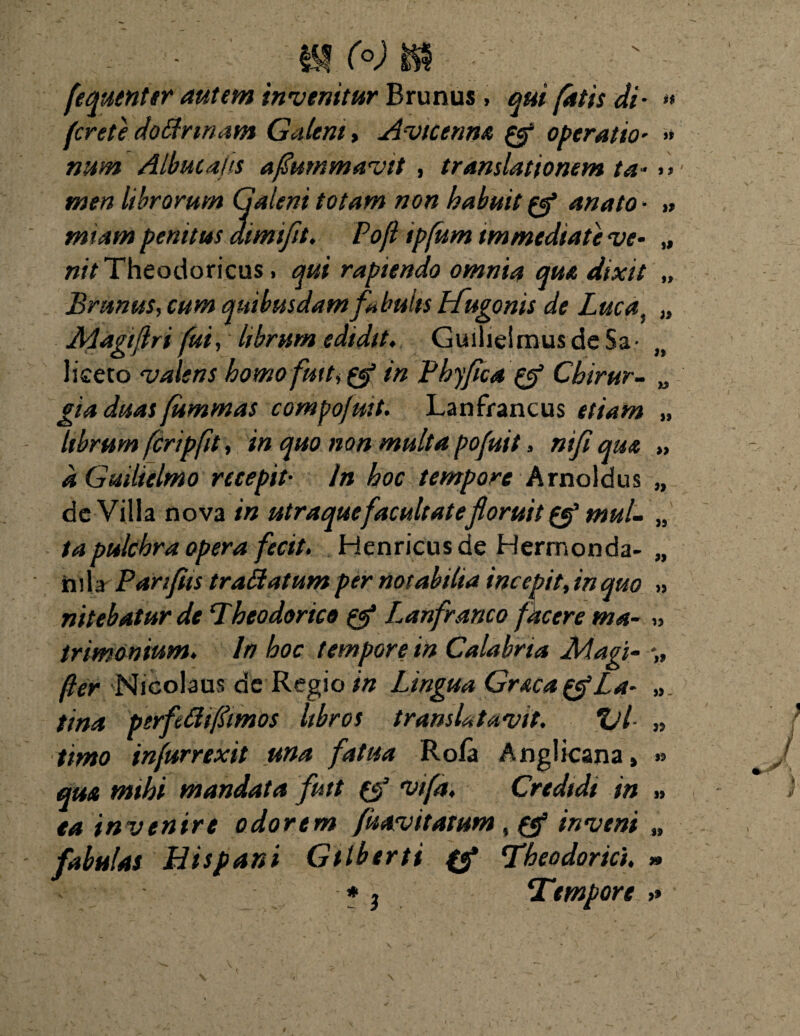 (o)
ſequenter autem invenitur Brunus, qui ſatis di- „
ſcretè doctrinam Galeni, Avicennæ & operatio- „
num Albucaſis aſſummavit, translationem ta- „
men librorum Galeni totam non habuit & anato- „
miam penitus dimiſit. Poſt ipſum immediatè ve- „
nit Theodoricus, qui rapiendo omnia quæ dixit „
Brunus, cum quibusdam fabulis Hugonis de Luca, „
Magiſtri ſui, librum edidit. Guilielmus de Sa- „
liceto valens homo fuit, & in Phyſica & Chirur- „
gia duas ſummas compoſuit. Lanfrancus etiam „
librum ſcripſit, in quo non multa poſuit, niſi quæ „
à Guilielmo recepit. In hoc tempore Arnoldus „
de Villa nova in utraque facultate floruit & mul- „
ta pulchra opera fecit. Henricus de Hermonda- „
nila Pariſiis tractatum per notabilia incepit, in quo „
nitebatur de Theodorico & Lanfranco facere ma- „
trimonium. In hoc tempore in Calabria Magi- „
ſter Nicolaus de Regio in Lingua Græca & La- „
tina perfectiſſimos libros translatavit. Vl- „
timo inſurrexit una fatua Roſa Anglicana, „
quæ mihi mandata fuit & viſa. Credidi in „
ea invenire odorem ſuavitatum, & inveni „
fabulas Hispani Gilberti & Theodorici. „
* 3 Tempore „